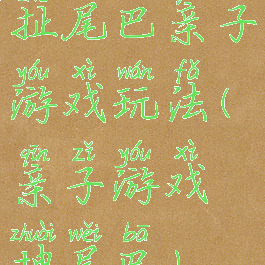 扯尾巴亲子
yóu xì wán fǎ
游戏玩法(
qīn zǐ yóu xì
亲子游戏
zhuài wěi bā
拽尾巴)